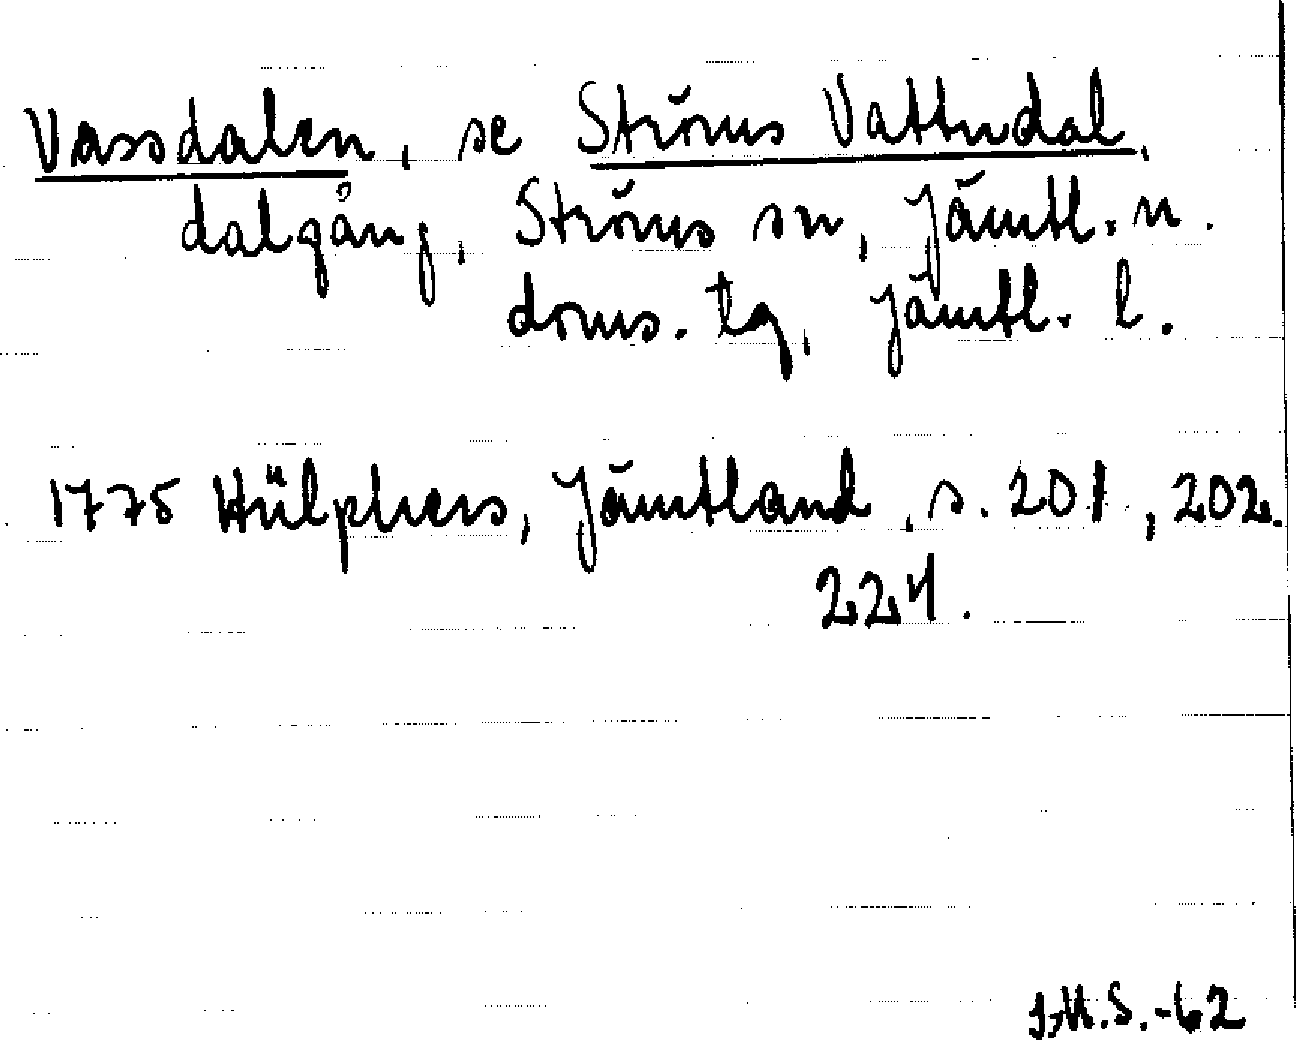 Vassdalen, se Ströms Vattudal,
dalgång, Ströms sn, Jämtl. n.
doms. tg, Jämtl. l.
1775 Hülphers, Jämtland, s. 201, 202.
224.
J.M.S.-62